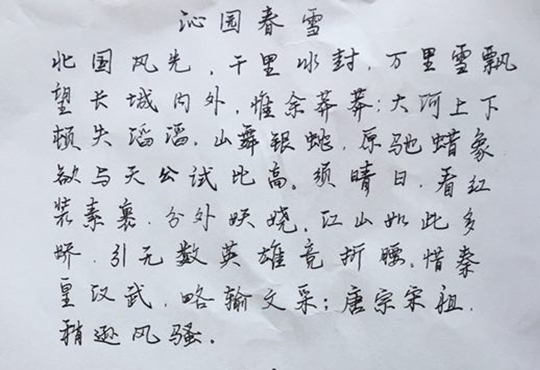 沁园春雪
北国风先，千里冰封，万里雪飘
望长城内外，惟余莽莽；大河上下
顿失滔滔，山舞银蛇，原驰蜡象
欲与天公试比高。须晴日，看红
装素裹，分外妖娆，江山如此多
娇，引无数英雄竞折腰，惜秦
皇汉武，略输文采；唐宗宋祖，
稍逊风骚。